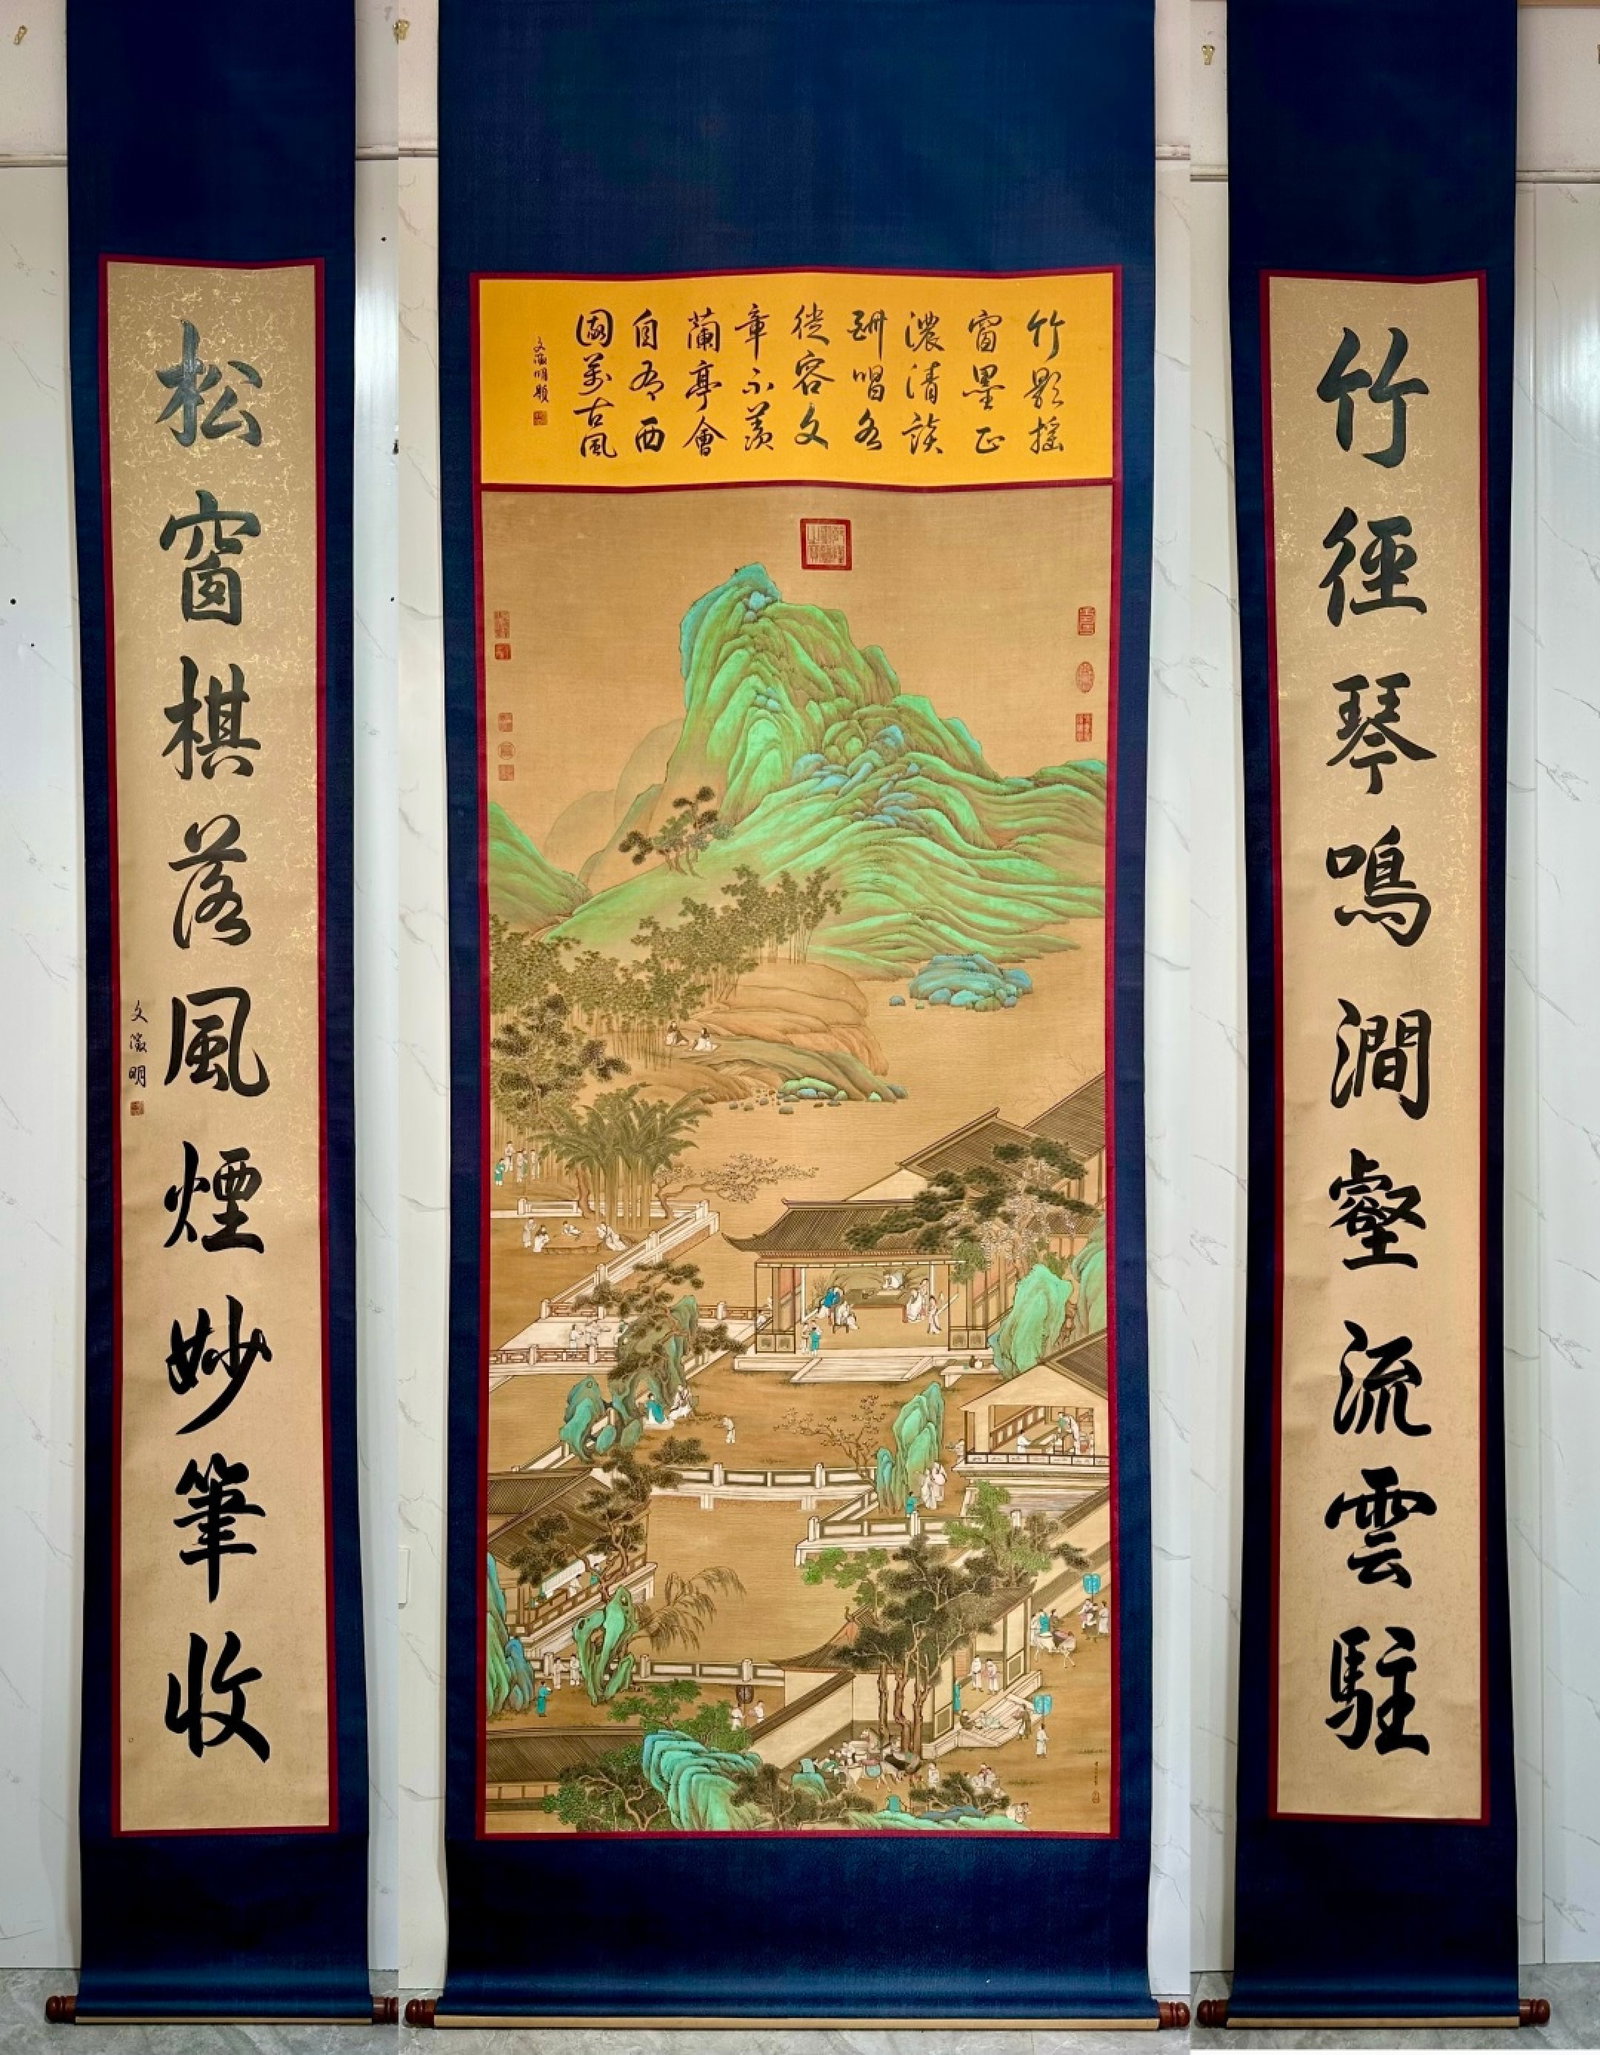 竹徑琴鳴澗壑流雲駐
竹影搖
窗墨正
濃清談
酬唱各
從容文
章不羨
蘭亭會
自有西
園萬古風
文徵明題
松窗棋落風煙妙筆收
文徵明